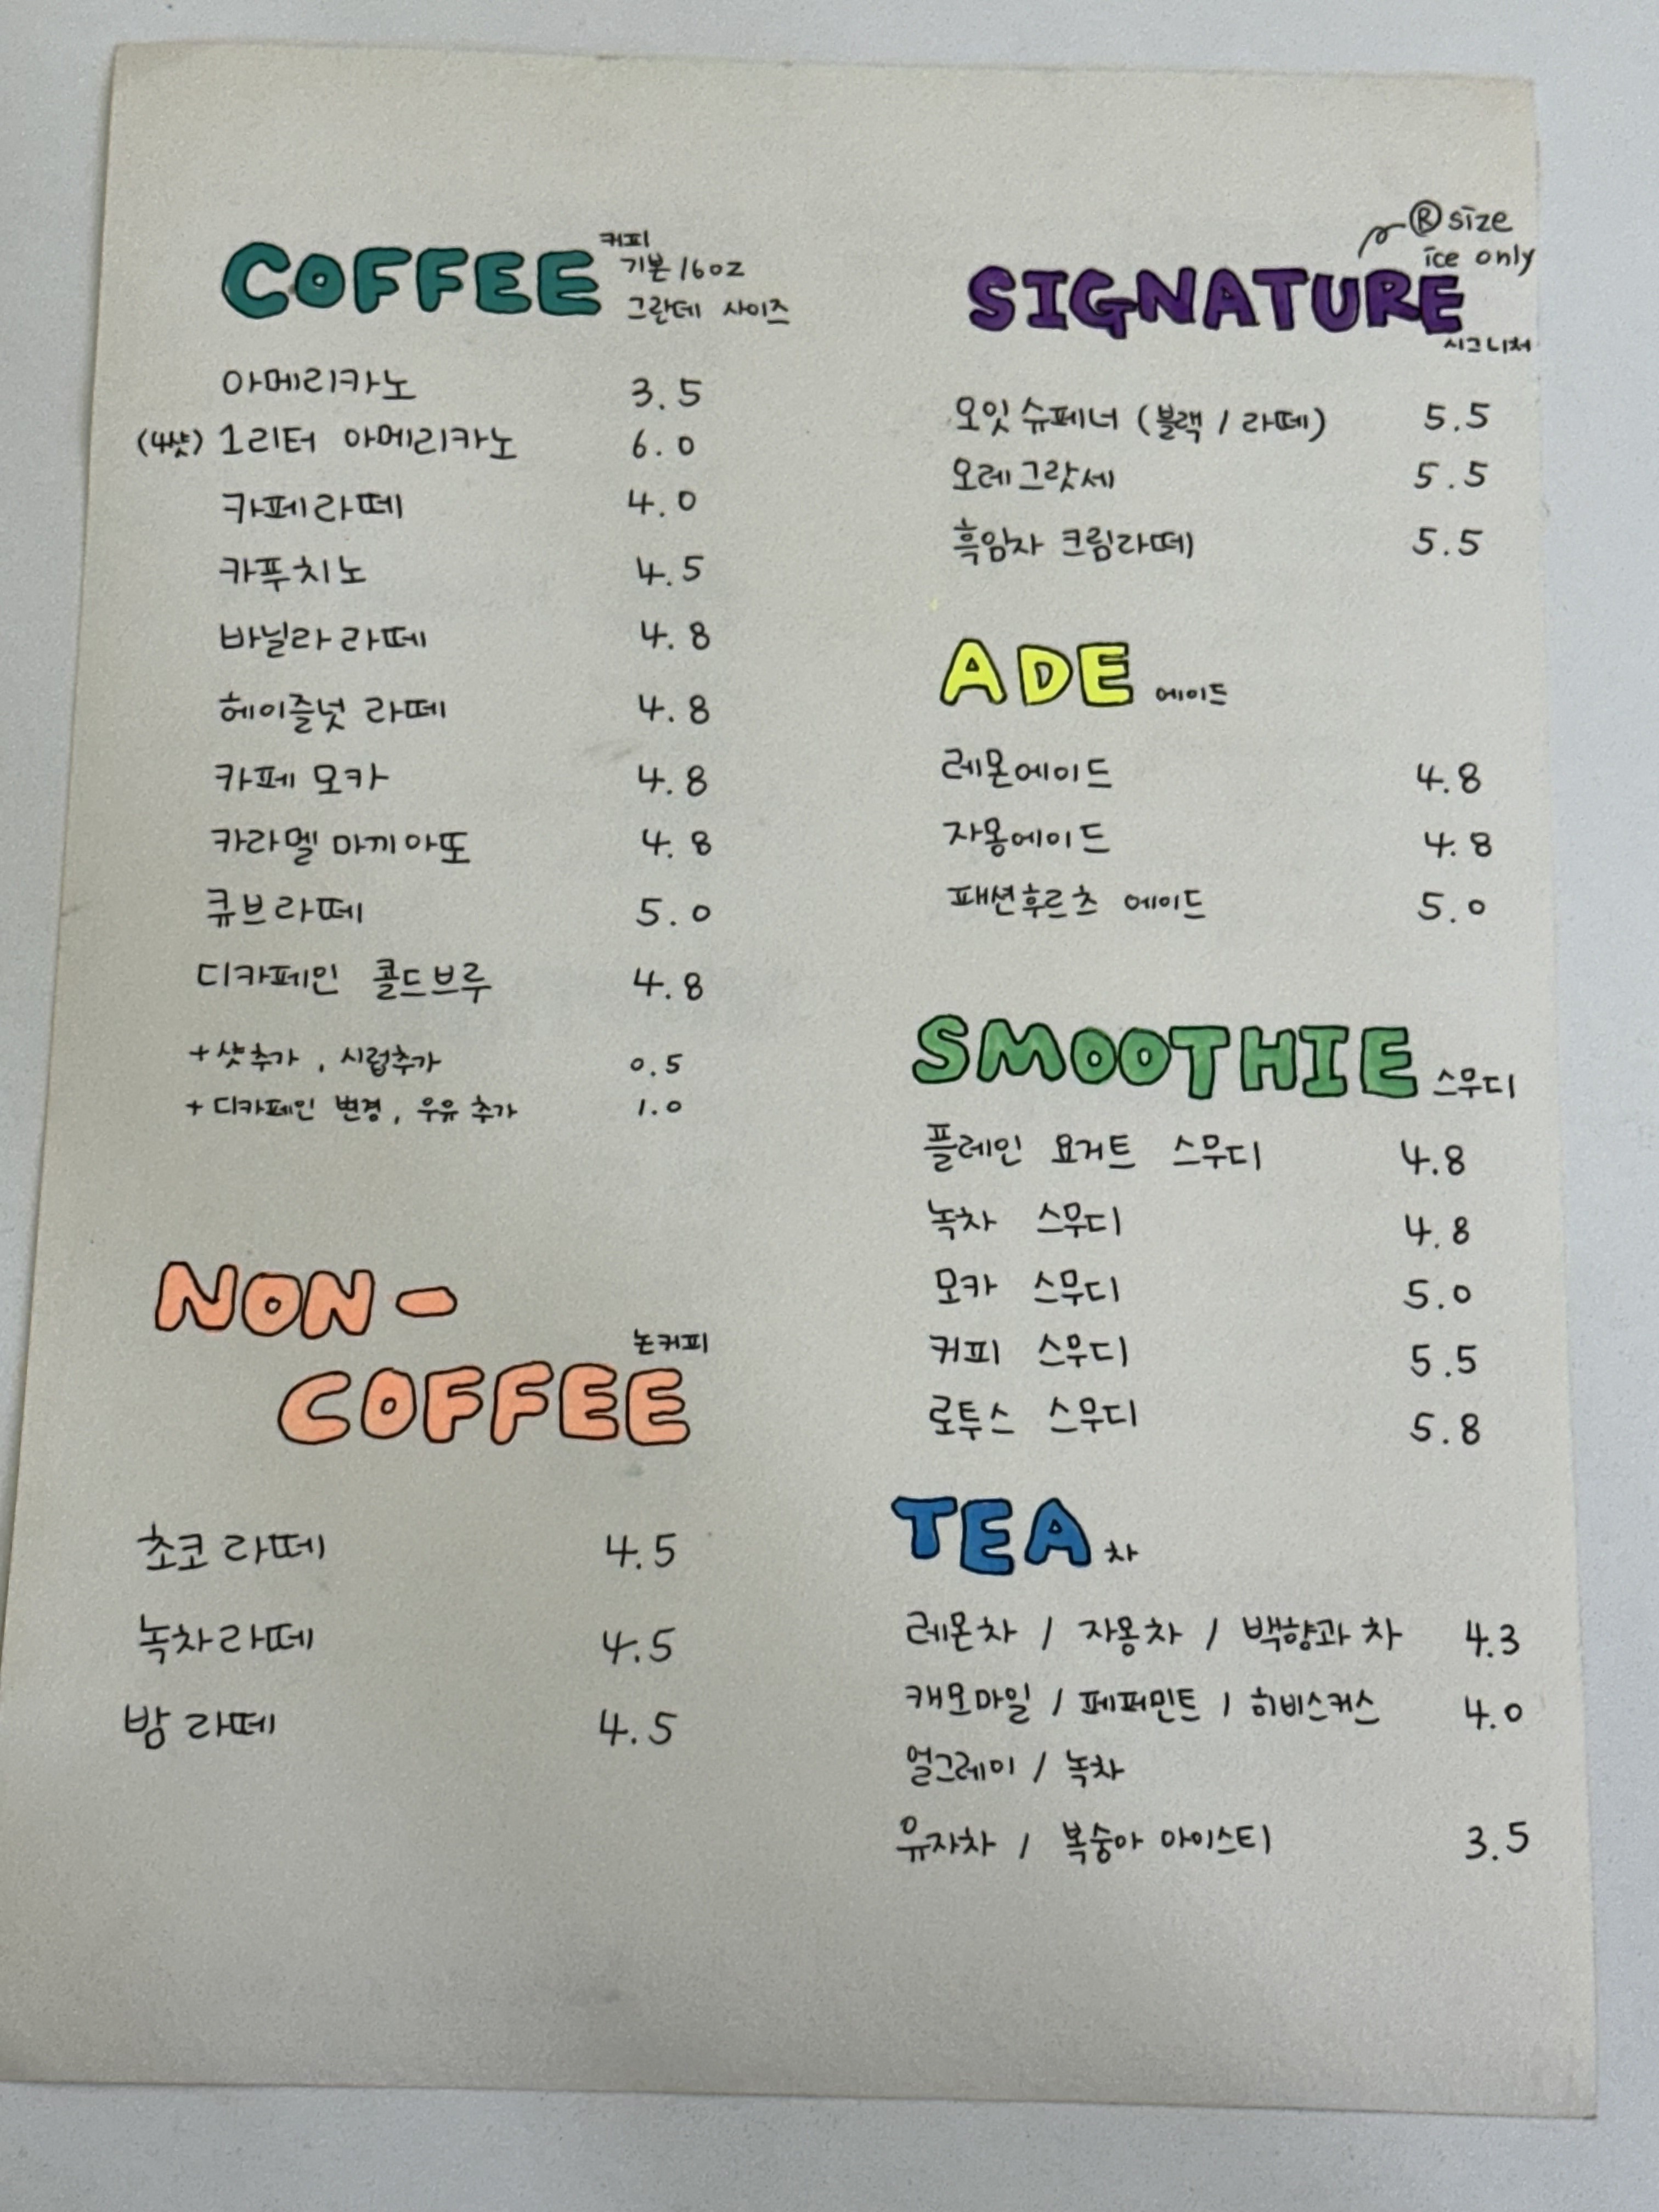 COFFEE 커피
기본 16oz
그란데 사이즈
아메리카노 3.5
(4샷) 1리터 아메리카노 6.0
카페라떼 4.0
카푸치노 4.5
바닐라 라떼 4.8
헤이즐넛 라떼 4.8
카페 모카 4.8
카라멜 마끼아또 4.8
큐브라떼 5.0
디카페인 콜드브루 4.8
+ 샷추가, 시럽추가 0.5
+ 디카페인 변경, 우유 추가 1.0
NON-
논커피
COFFEE
초코 라떼 4.5
녹차라떼 4.5
밤 라떼 4.5
Ⓡ size
ice only
SIGNATURE
시그니처
오잇슈페너 (블랙 / 라떼) 5.5
오레그랏세 5.5
흑임자 크림라떼 5.5
ADE 에이드
레몬에이드 4.8
자몽에이드 4.8
패션후르츠 에이드 5.0
SMOOTHIE 스무디
플레인 요거트 스무디 4.8
녹차 스무디 4.8
모카 스무디 5.0
커피 스무디 5.5
로투스 스무디 5.8
TEA 차
레몬차 / 자몽차 / 백향과 차 4.3
캐모마일 / 페퍼민트 / 히비스커스 4.0
얼그레이 / 녹차
유자차 / 복숭아 아이스티 3.5